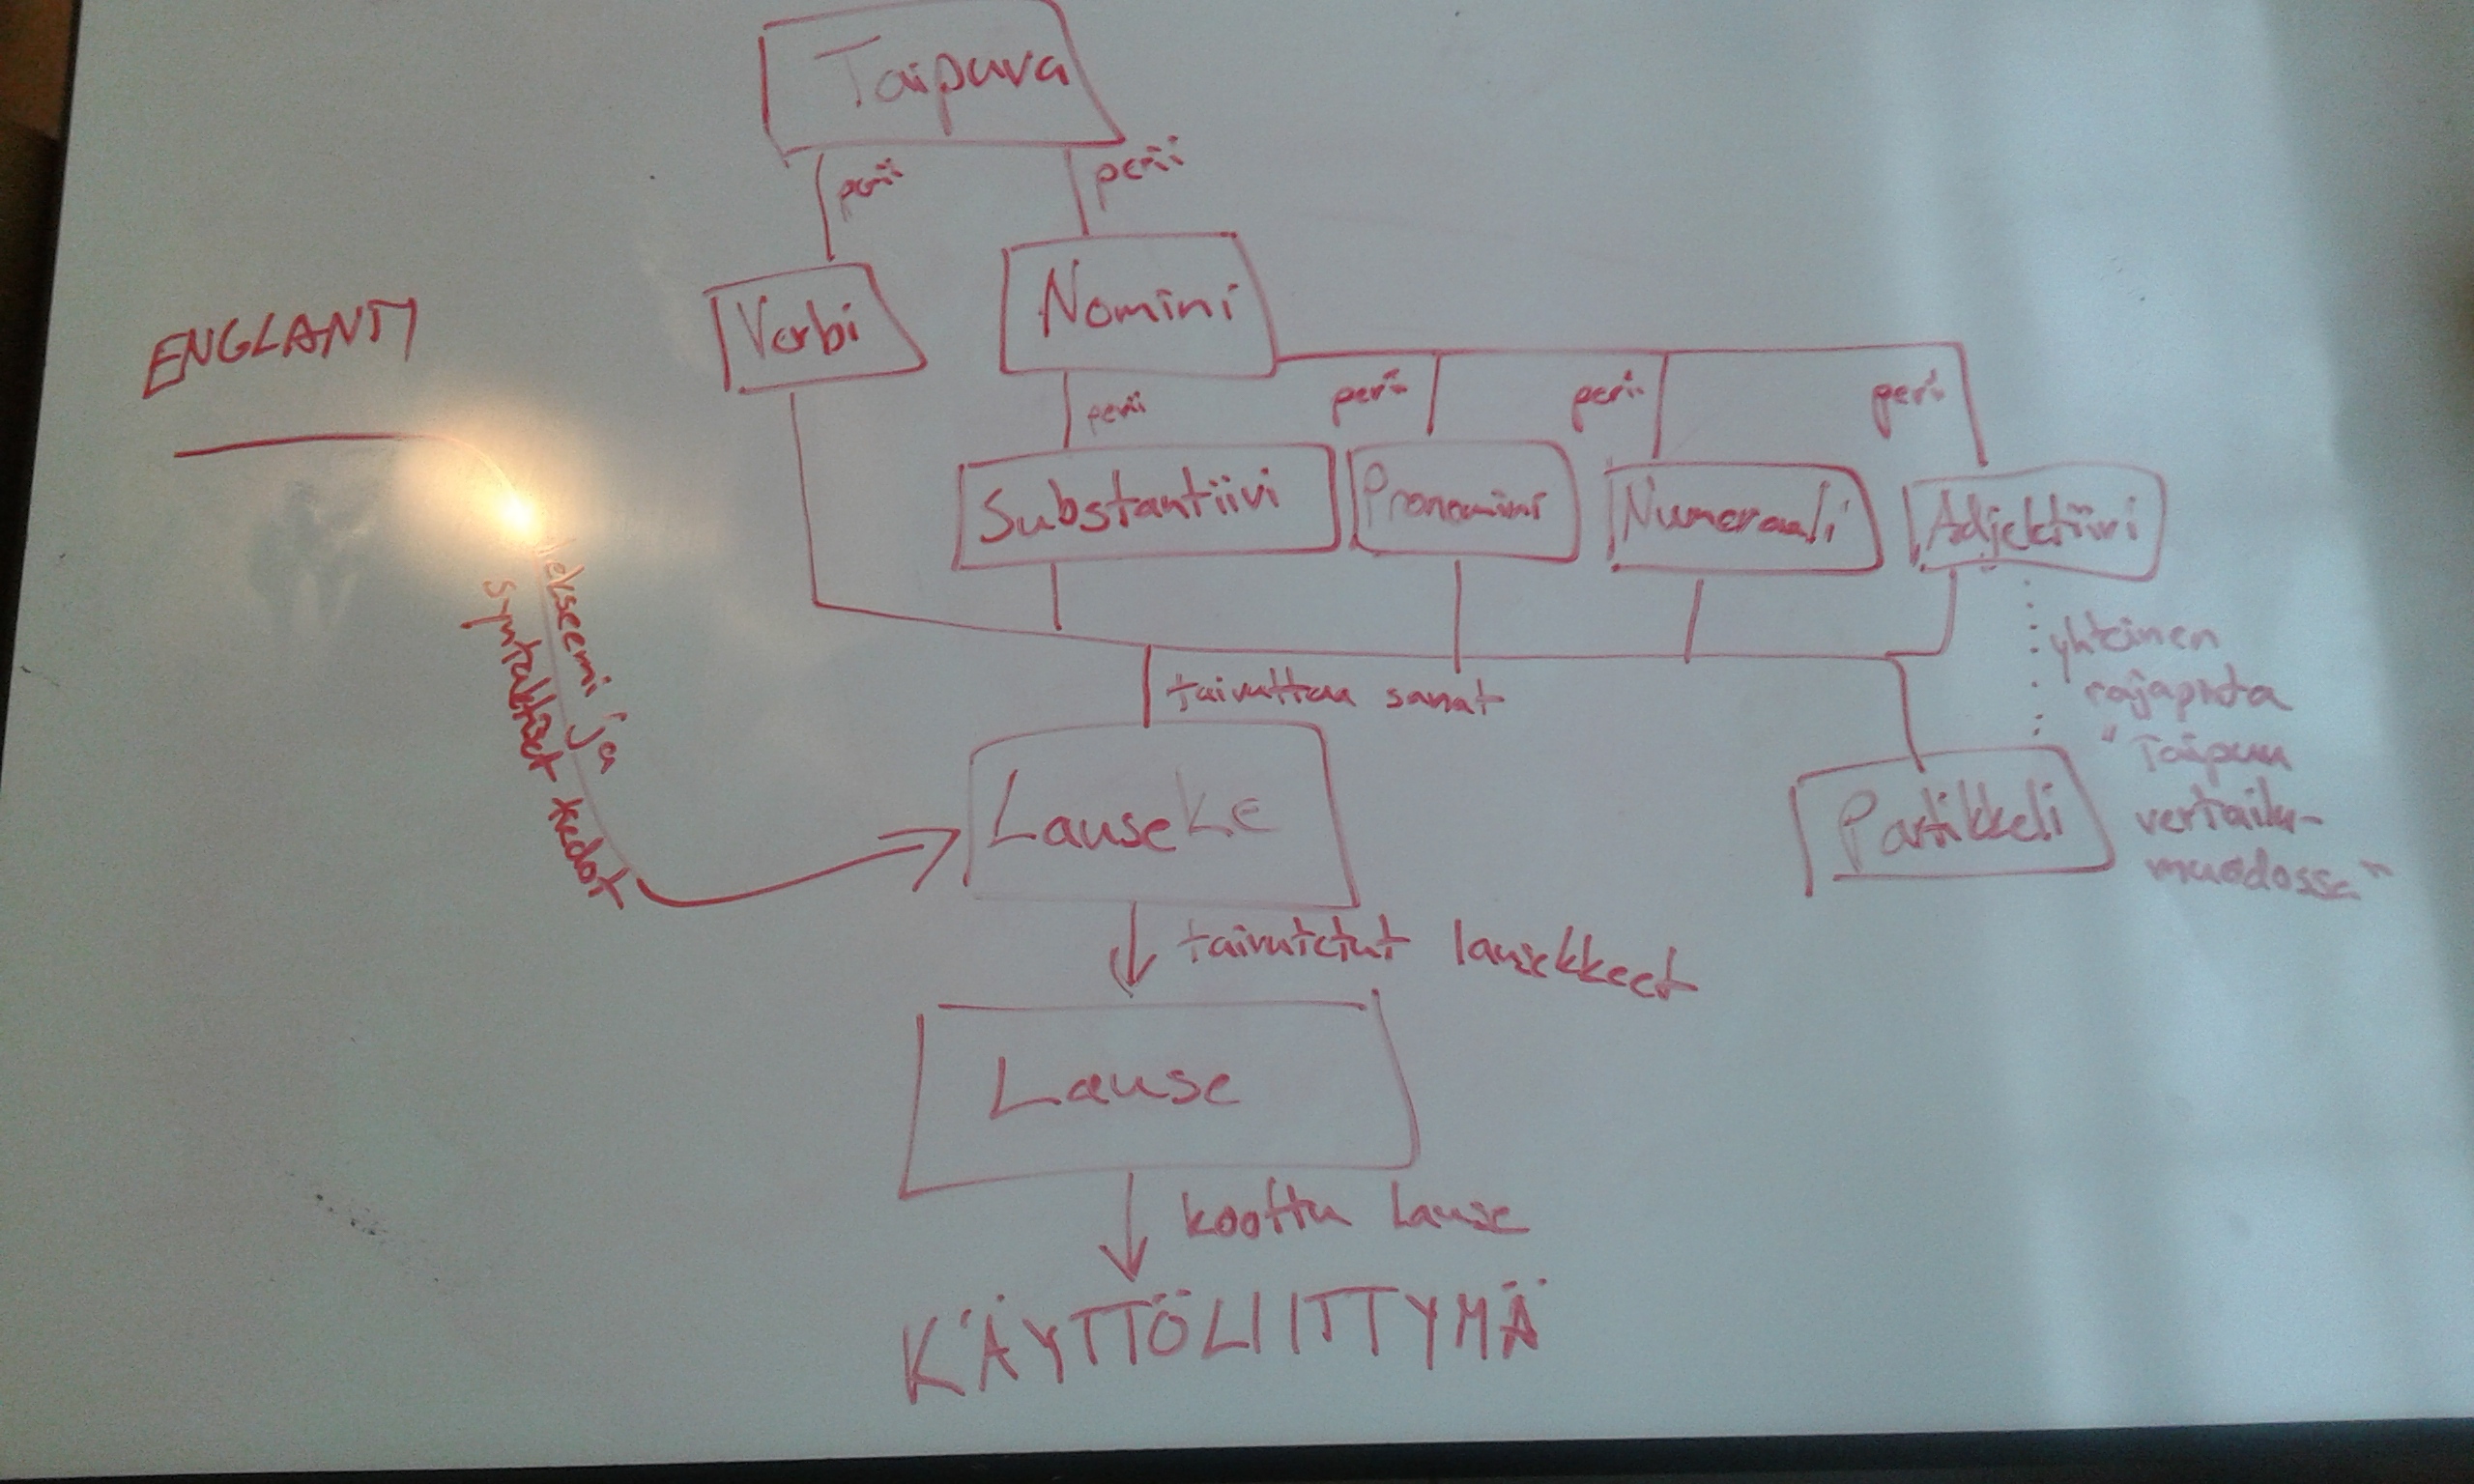 Taipuva
perii
perii
Verbi
Nomini
ENGLANTI
perii
perii
perii
perii
Substantiivi
Pronomini
Numeraali
Adjektiivi
lekseemi ja
syntaktiset tiedot
yhteinen
rajapinta
"Taipuu
vertailu-
muodossa"
taivuttaa sanat
Lauseke
Partikkeli
taivutetut lausekkeet
Lause
koottu lause
KÄYTTÖLIITTYMÄ